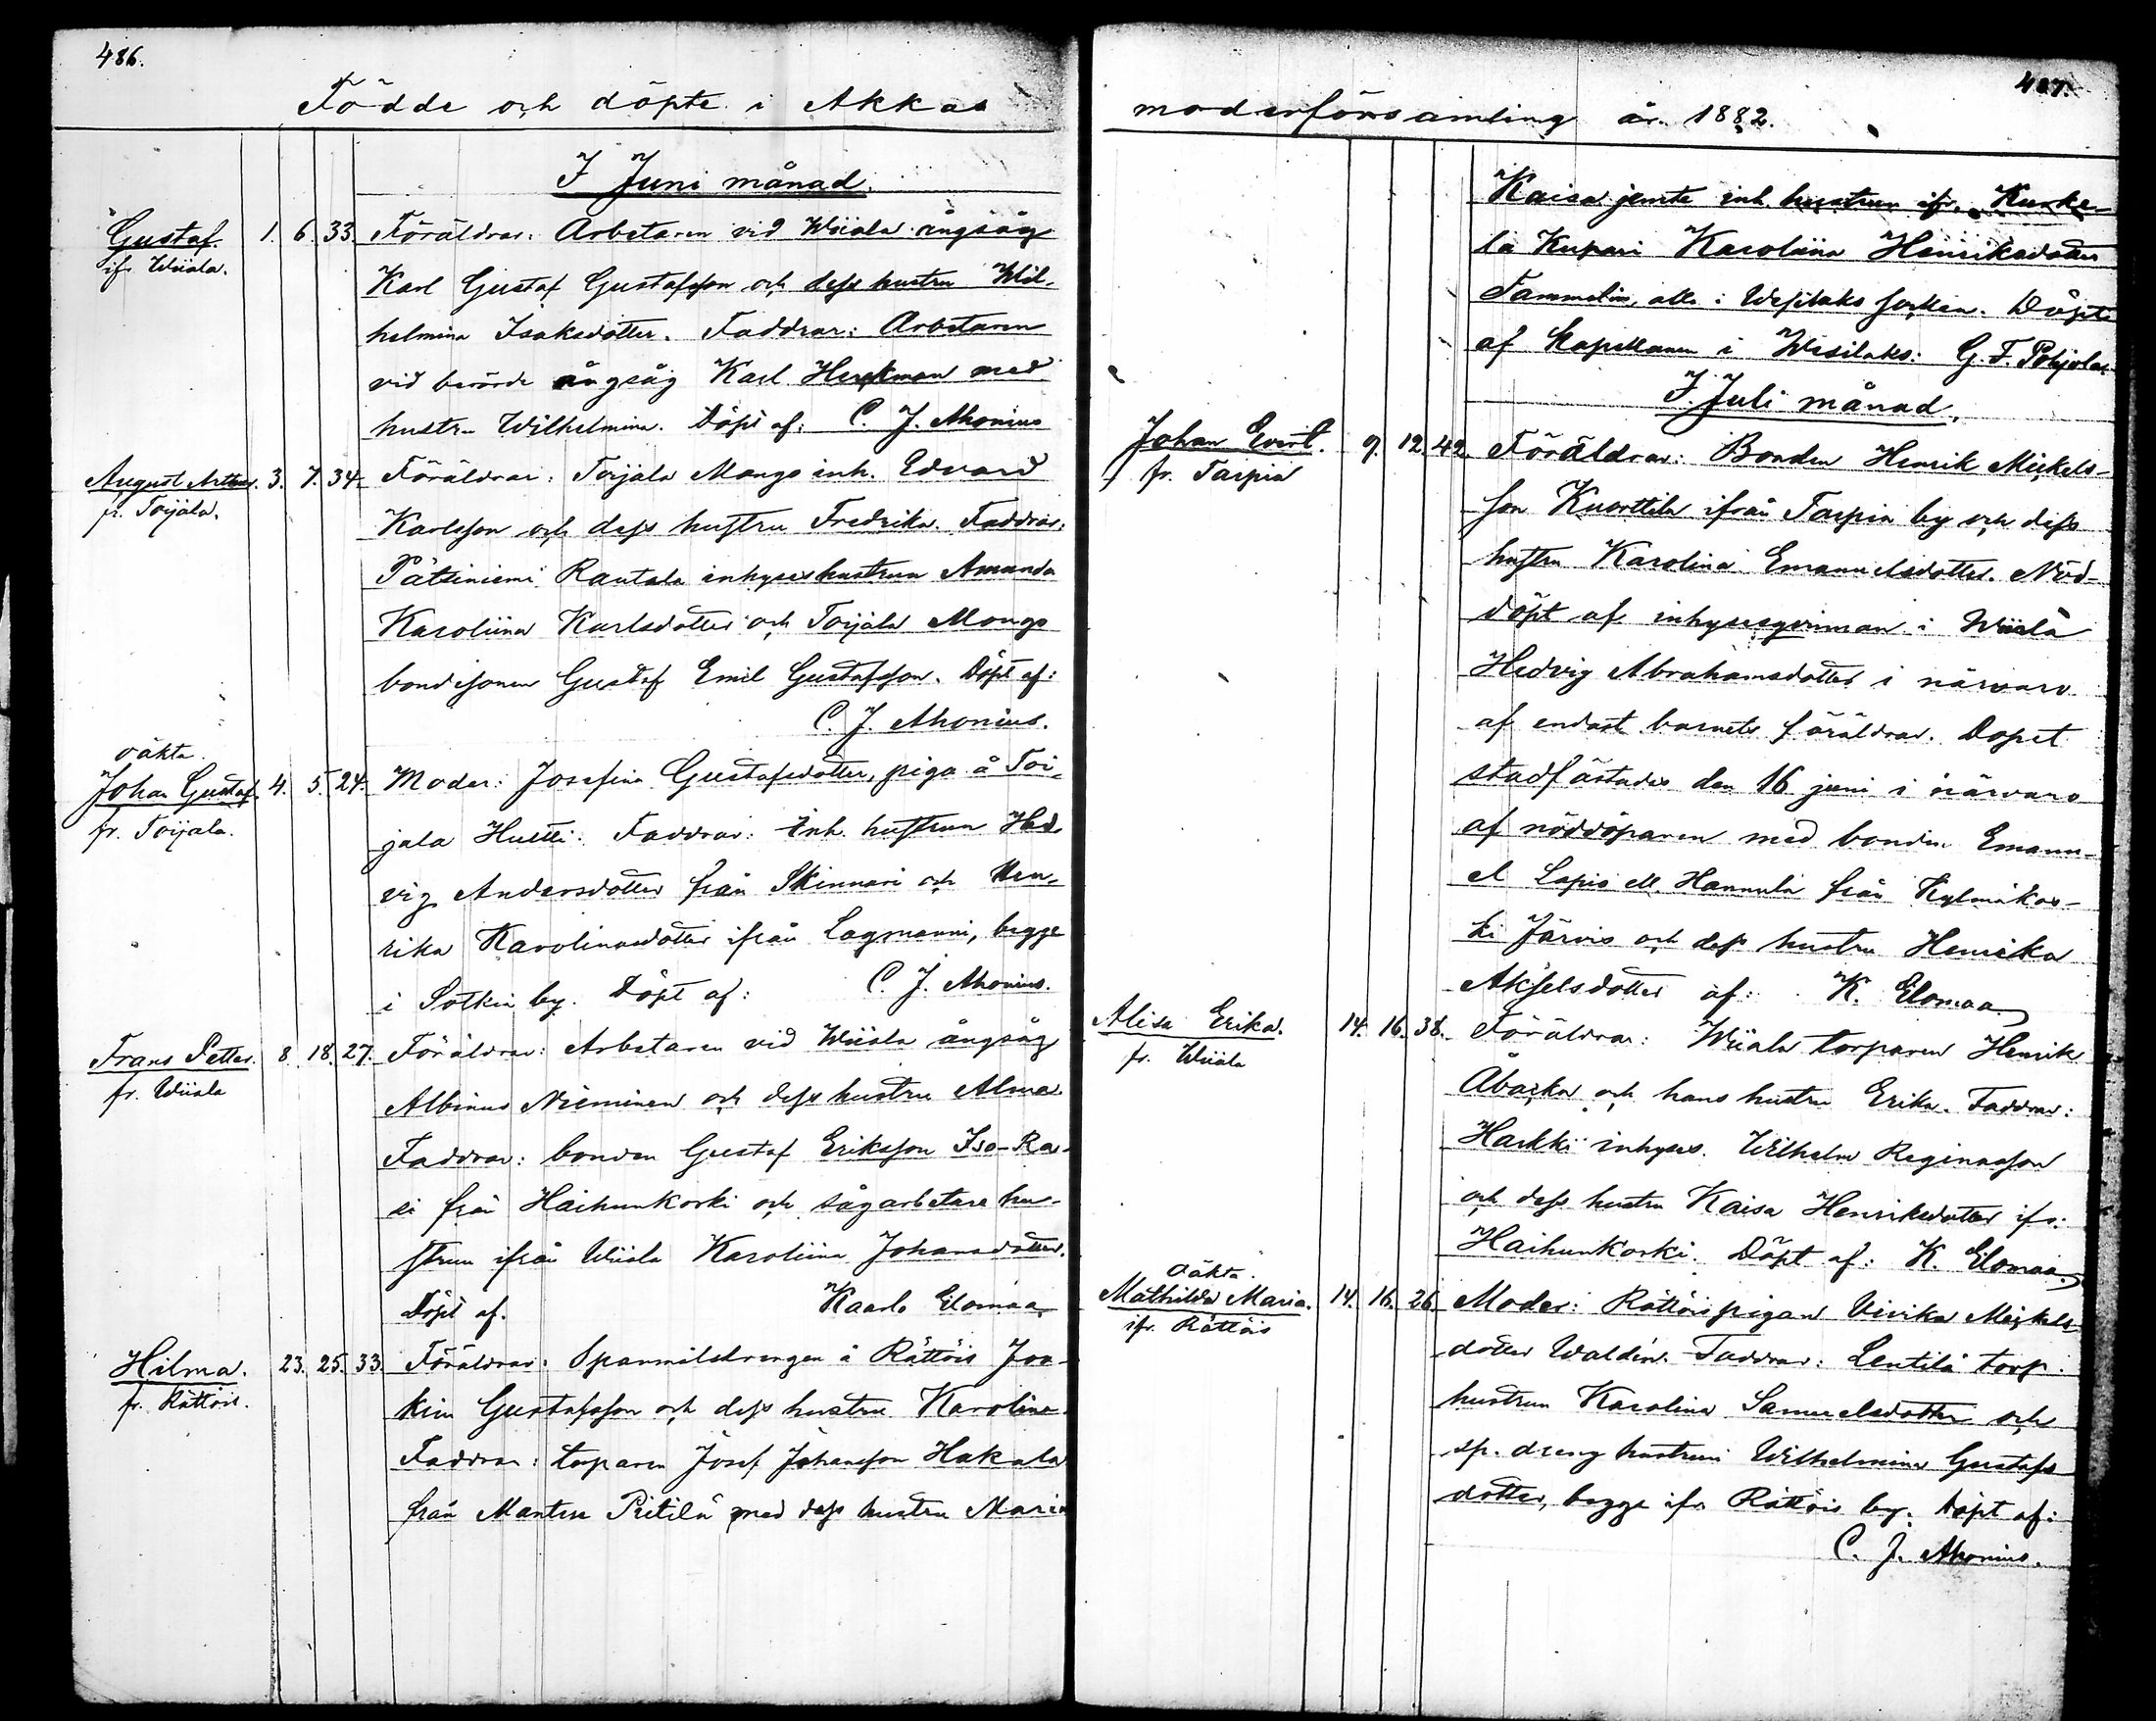 486.
Födde och döpte i Akkas
I Juni månad.
Gustaf. 1. 6. 33. Föräldrar: Arbetaren vid Wiiala ångsåg
ifr. Wiiala.
Karl Gustaf Gustafsson och dess hustru Wil-
helmina Isaksdotter. Faddrar: Arbetaren
vid berörde ångsåg Karl Herkman med
hustru Wilhelmina. Döpt af: C. J. Ahonius
August Arthur. 3. 7. 34. Föräldrar: Toijala Mongo inh. Edvard
fr. Toijala.
Karlsson och dess hustru Fredrika. Faddrar:
Pätsiniemi Rautala inhyseshustrun Amanda
Karoliina Karlsdotter och Toijala Mongo
bondesonen Gustaf Emil Gustafsson. Döpt af:
C. J. Ahonius.
oäkta.
Johan Gustaf. 4. 5. 24. Moder: Josefina Gustafsdotter, piga å Toi-
fr. Toijala.
jala Huttti. Faddrar: Inh. hustrun Hed-
vig Andersdotter från Skinnari och Hen-
rika Karolinasdotter ifrån Lagmanni, begge
i Sotkia by. Döpt af: C. J. Ahonius.
Frans Petter. 8. 18. 27. Föräldrar: Arbetaren vid Wiiala ångsåg
fr. Wiiala
Albinus Nieminen och dess hustru Alma.
Faddrar: bonden Gustaf Eriksson Iso-Ra-
si från Haihunkorki och sågarbetare hu-
strun ifrån Wiiala Karoliina Johansdotter.
Döpt af. Kaarlo Elomaa
Hilma. 23. 25. 33. Föräldrar: Spanmålsdrengen å Rättöis Joa-
fr. Rättöis.
kim Gustafsson och dess hustru Karolina
Faddrar: torparen Josef Johansson Hakala
från Mantere Pietilä med dess hustru Maria
487.
moderförsamling år 1882.
Kaisa jemte inh. hustrun ifr. Kurke-
la Kupari Karoliina Henriksdotter
Tammelin, alla i Wesilaks socken. Döpt
af Kapellanen i Wesilaks: G. F. Pohjola.
I Juli månad.
Johan Evert. 9. 12. 42. Föräldrar: Bonden Henrik Mickels-
fr. Tarpia
son Kuorttila ifrån Tarpia by och dess
hustru Karolina Emanuelsdotter. Nöd-
döpt af inhysesqvinnan i Wiiala
Hedvig Abrahamsdotter i närvaro
af endast barnets föräldrar. Dopet
stadfästades den 16 juni i närvaro
af nöddöparen med bonden Emanu-
el Lapio ell. Hannula från Kylmäkos-
ki Järvis och dess hustru Henrika
Akselsdotter af: K. Elomaa
Alisa Erika. 14. 16. 38. Föräldrar: Wiiala torparen Henrik
fr. Wiiala
Abacka och hans hustru Erika. Faddrar:
Harkki inhyses. Wilhelm Reginasson
och dess hustru Kaisa Henriksdotter ifr.
Haihunkorki. Döpt af: K. Elomaa.
oäkta.
Mathilda Maria. 14. 16. 26. Moder: Rättöis pigan Vivika Mickels-
ifr. Rättöis
dotter Waldén. Faddrar: Lentilä torp.
hustrun Karolina Samuelsdotter och
sp. dreng hustrun Wilhelmina Gustafs
dotter, begge ifr. Rättöis by. Döpt af:
C. J. Ahonius.